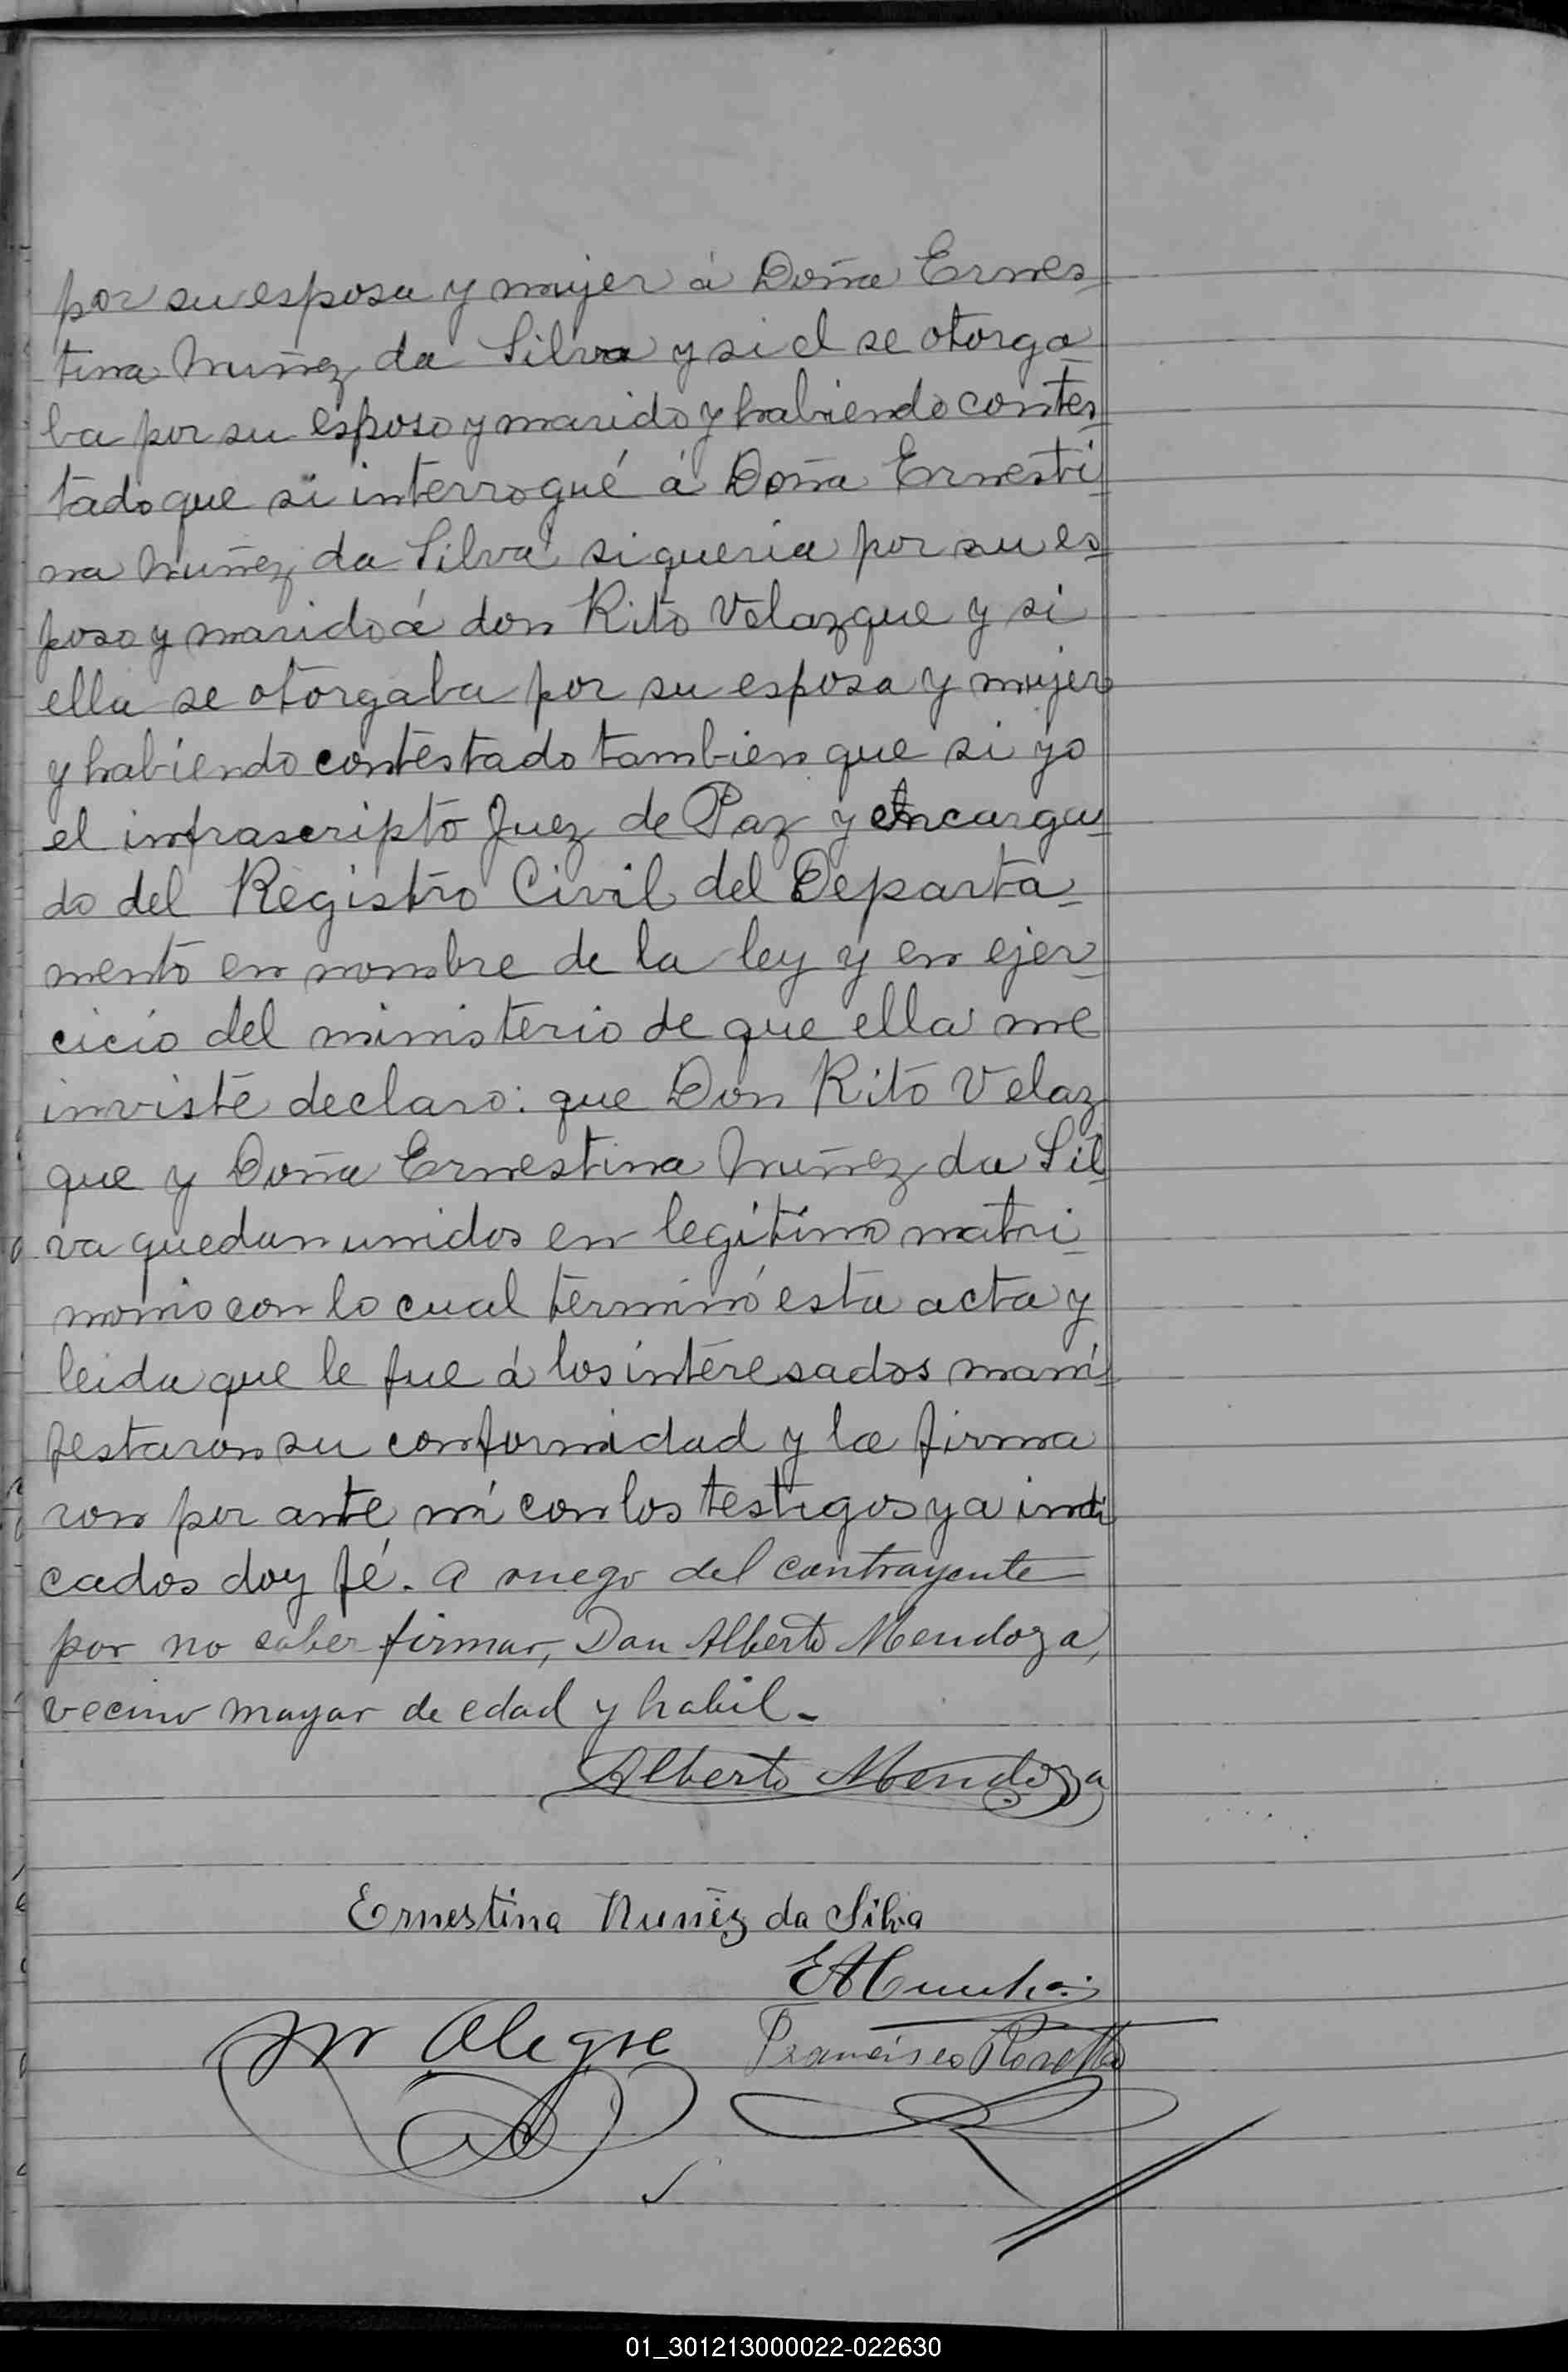 por su esposa y mujer á Doña Ernes-
tina Nuñez da Silva y si el se otorga-
ba por su esposo y marido y habiendo contes-
tado que si interrogué á Doña Ernesti-
na Nuñez da Silva si queria por su es-
poso y marido á don Rito Velazque y si
ella se otorgaba por su esposa y mujer
y habiendo contestado tambien que si yo
el infrascripto Juez de Paz y encarga-
do del Registro Civil del Departa-
mento en nombre de la ley y en ejer-
cicio del ministerio de que ella me
inviste declaro: que Don Rito Velaz-
que y Doña Ernestina Nuñez da Sil-
va quedan unidos en legítimo matri-
monio con lo cual terminó esta acta y
leida que le fue á los interesados mani-
festaron su conformidad y la firma
ron por ante mí con los testigos ya indi
cados doy fé. A ruego del contrayente
por no saber firmar, Don Alberto Mendoza,
vecino mayor de edad y habil.-
Alberto Mendoza
Ernestina Nuñez da Silva
Alegre Francisco
01_301213000022-022630